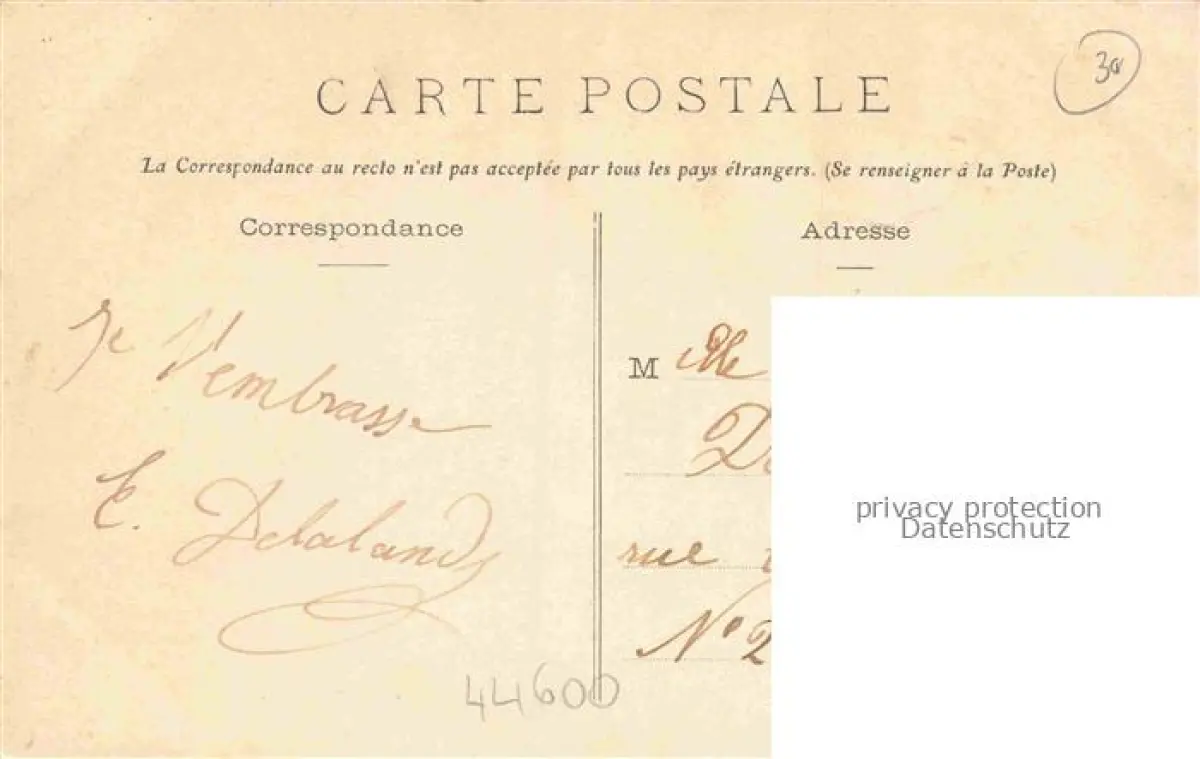 30
CARTE POSTALE
La Correspondance au recto n'est pas acceptée par tous les pays étrangers. (Se renseigner à la Poste)
Correspondance
Adresse
Je t'embrasse
E. Delalande
M elle
rue
N° 2
44600
privacy protection
Datenschutz